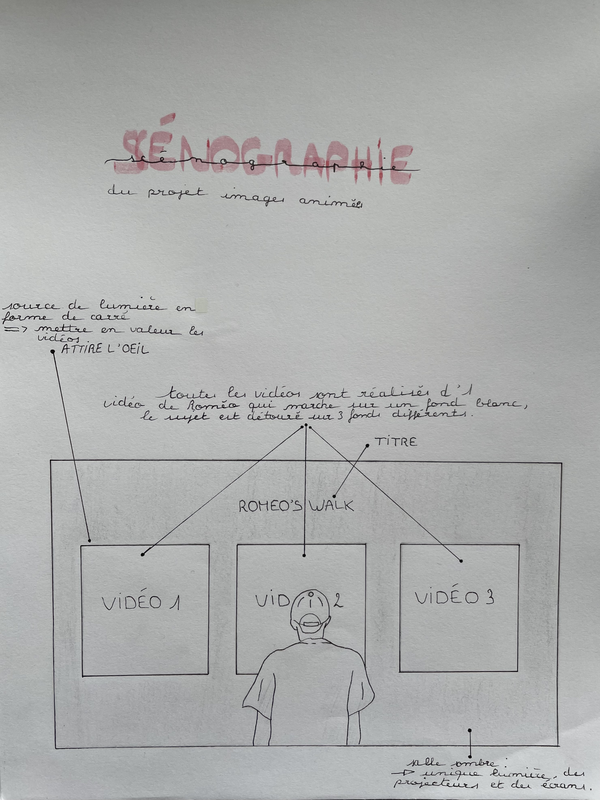 SÉNOGRAPHIE
scénographie
du projet images animées
source de lumière en
forme de carré
=> mettre en valeur les
vidéos
ATTIRE L'OEIL
toutes les vidéos sont réalisés d'1
vidéo de Roméo qui marche sur un fond blanc,
le sujet est détouré sur 3 fonds différents.
TITRE
ROMEO'S WALK
VIDÉO 1
VID 2
VIDÉO 3
salle ombre :
→ unique lumière, des
projecteurs et des écrans.